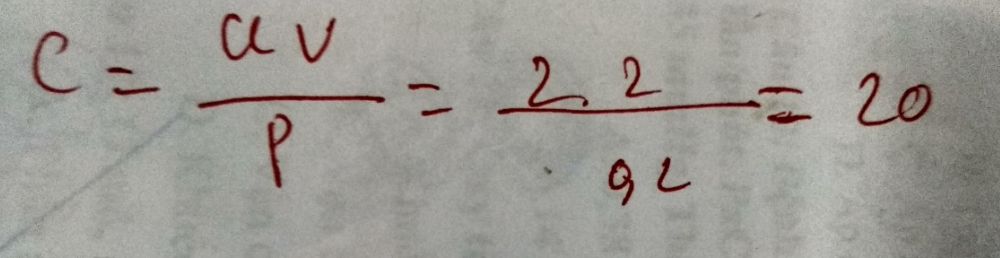 C = av / p = 2.2 / 0,2 = 20